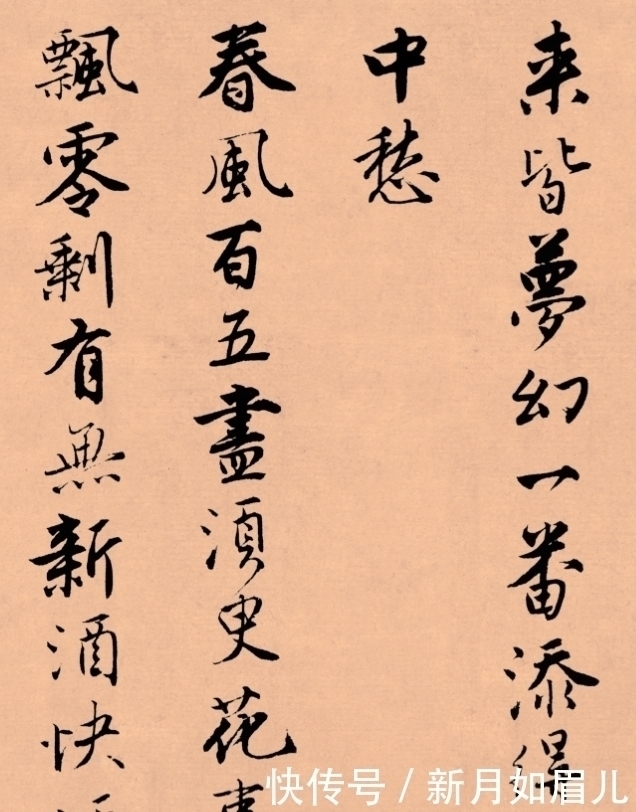 来皆夢幻一番添得
中愁
春風百五盡湏臾花事
飄零剩有無新酒快
快传号 / 新月如眉儿